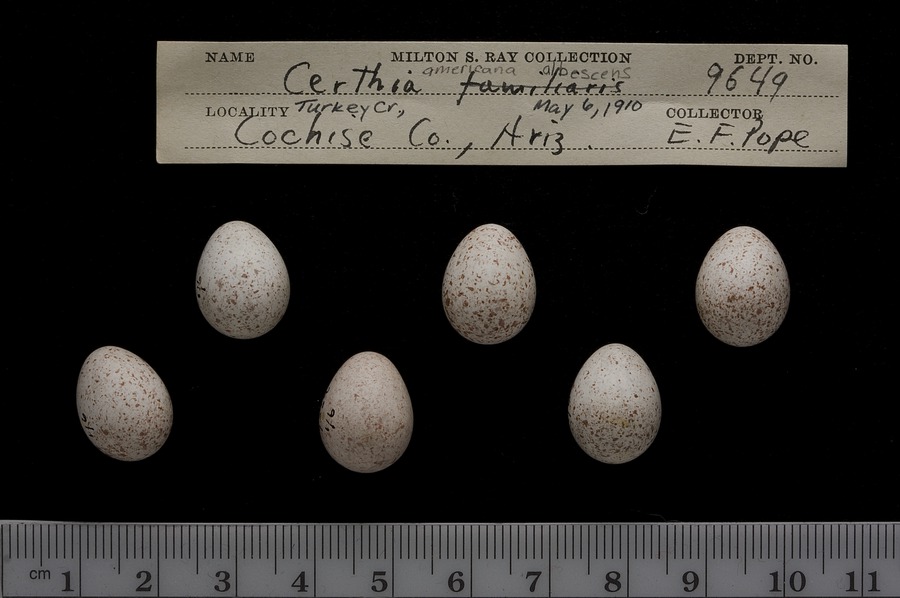 NAME MILTON S. RAY COLLECTION DEPT. NO.
americana albescens
Certhia familiaris 9649
LOCALITY Turkey Cr., May 6, 1910 COLLECTOR
Cochise Co., Ariz. E. F. Pope
cm 1 2 3 4 5 6 7 8 9 10 11